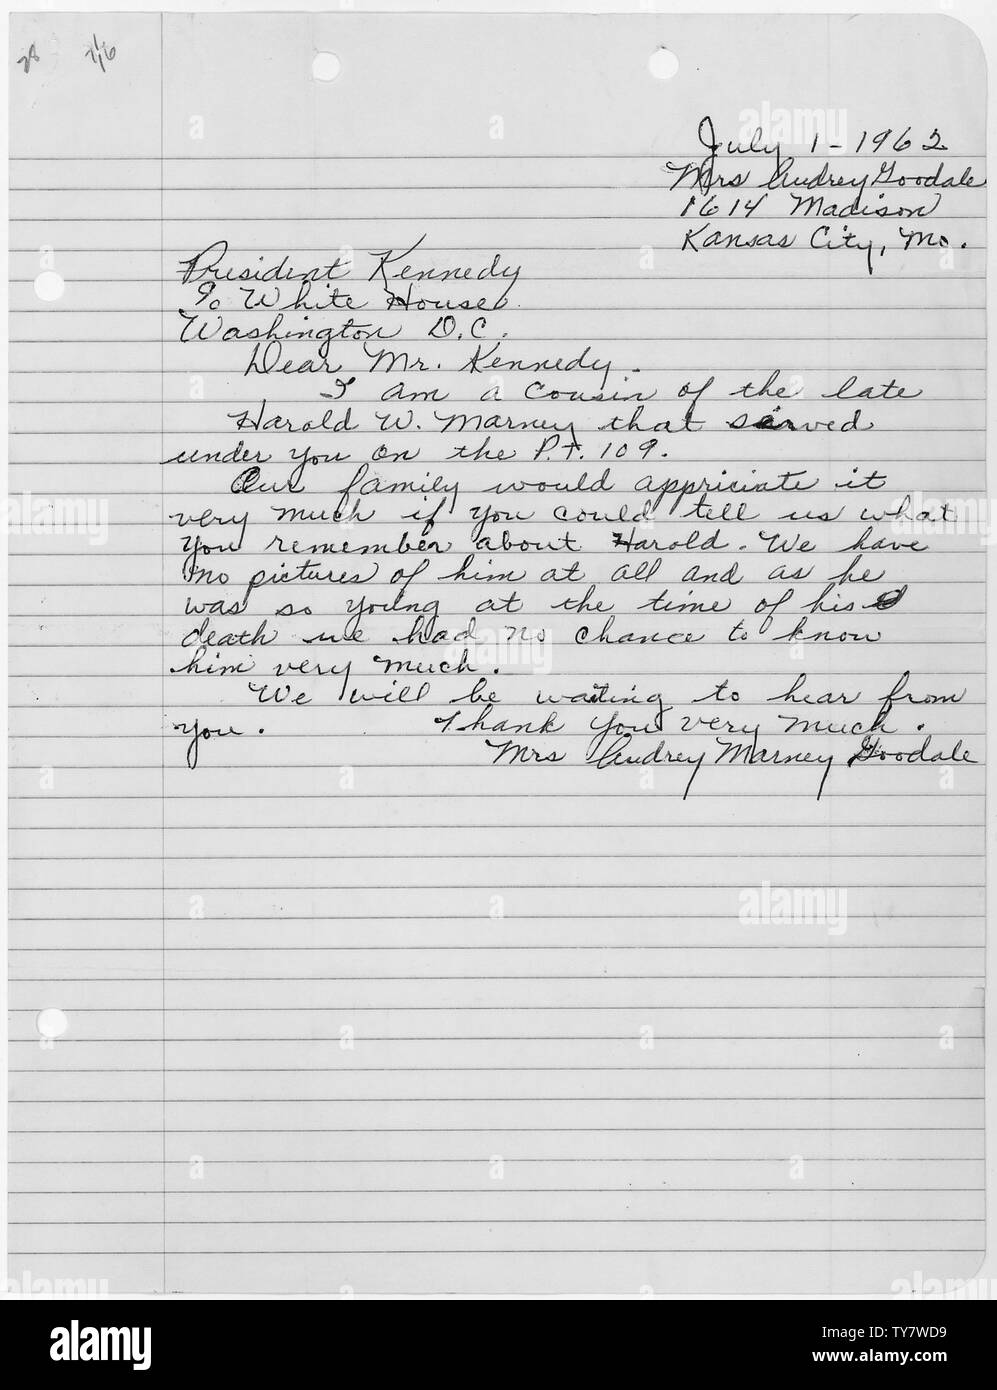 July 1-1962
Mrs Audrey Goodale
1614 Madison
Kansas City, Mo.
President Kennedy
% White House
Washington D.C.
Dear Mr. Kennedy.
I am a cousin of the late
Harold W. Marney that served
under you on the P.T. 109.
Our family would appriciate it
very much if you could tell us what
you remember about Harold. We have
no pictures of him at all and as he
was so young at the time of his
death we had no chance to know
him very much.
We will be waiting to hear from
you. Thank you very much.
Mrs Audrey Marney Goodale
alamy
Image ID: TY7WD9
www.alamy.com